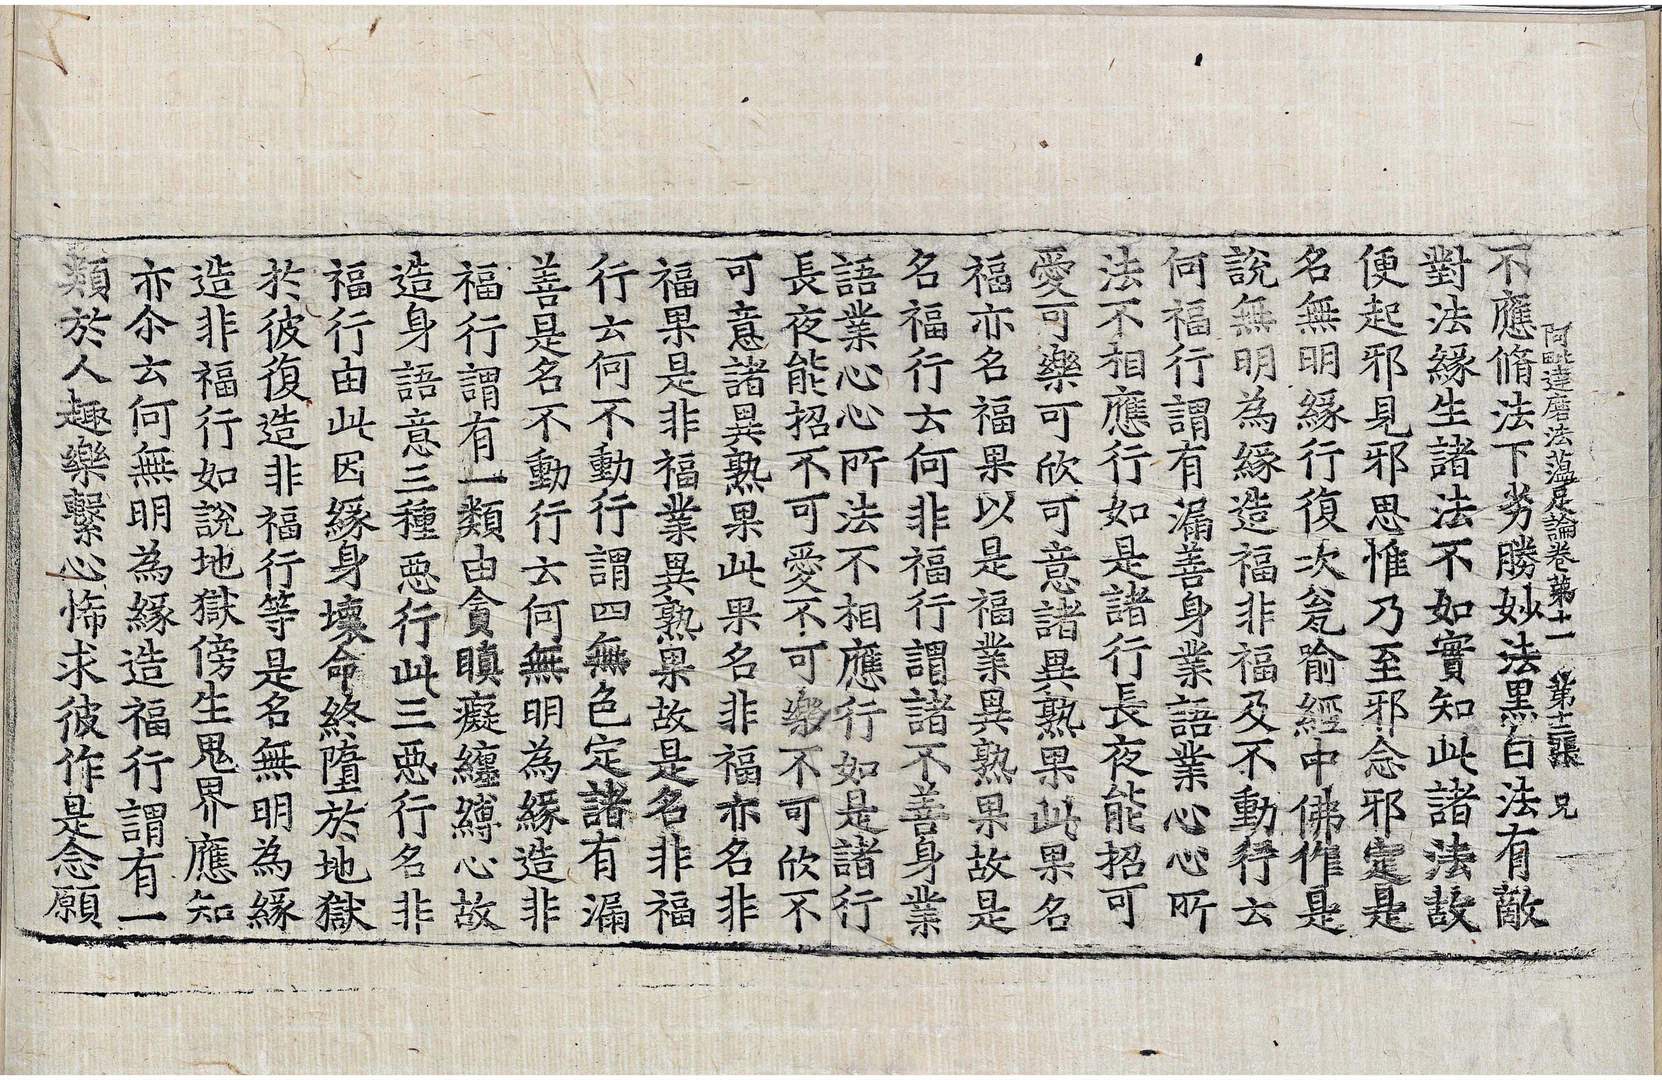 阿毗達磨法蘊足論卷第十一　第十三張　兄
不應脩法下劣勝妙法黑白法有敵
對法緣生諸法不如實知此諸法故
便起邪見邪思惟乃至邪念邪定是
名無明緣行復次瓮踰經中佛作是
說無明為緣造福非福及不動行云
何福行謂有漏善身業語業心心所
法不相應行如是諸行長夜能招可
愛可樂可欣可意諸異熟果此果名
福亦名福果以是福業異熟果故是
名福行云何非福行謂諸不善身業
語業心心所法不相應行如是諸行
長夜能招不可愛不可樂不可欣不
可意諸異熟果此果名非福亦名非
福果是非福業異熟果故是名非福
行云何不動行謂四無色定諸有漏
善是名不動行云何無明為緣造非
福行謂有一類由貪瞋癡纏縛心故
造身語意三種惡行此三惡行名非
福行由此因緣身壞命終墮於地獄
於彼復造非福行等是名無明為緣
造非福行如說地獄傍生鬼界應知
亦尒云何無明為緣造福行謂有一
類於人趣樂繫心悕求彼作是念願